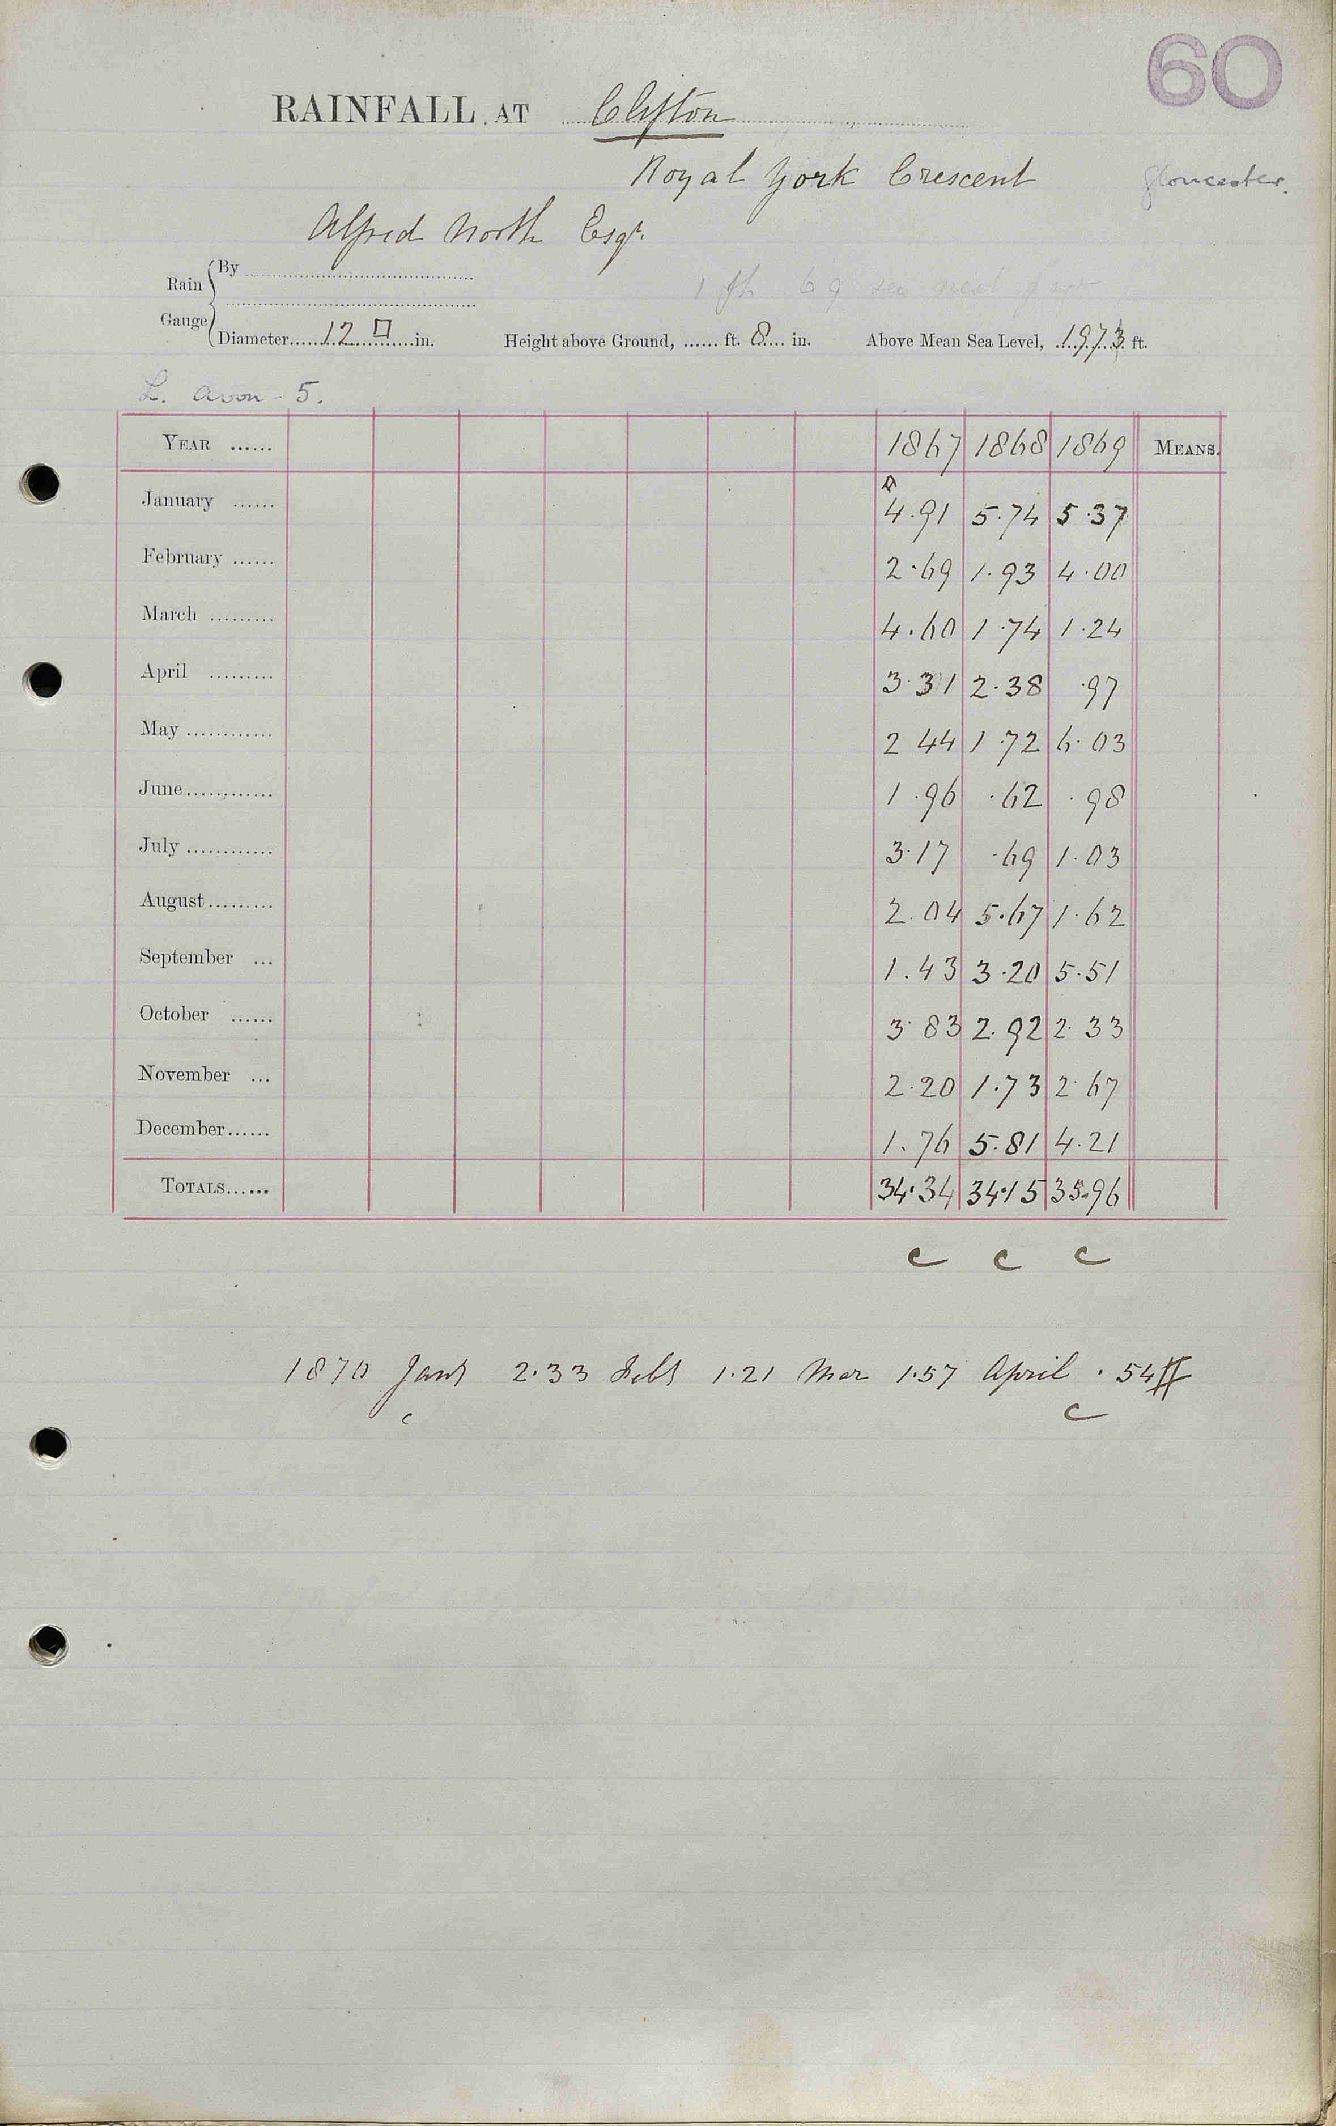 60
RAINFALL AT Clifton
Royal York Crescent Gloucester.
Alfred North Esqr.
Rain Gauge { By
Diameter......12 □......in. Height above Ground, ...... ft. 8.... in. Above Mean Sea Level, ..1973.. ft.
L. Avon - 5.
YEAR ...... 1867 1868 1869 MEANS.
January ...... 4.91 5.74 5.37
February ...... 2.69 1.93 4.00
March ......... 4.60 1.74 1.24
April ......... 3.31 2.38 .97
May ............ 2 44 1.72 6.03
June............ 1.96 .62 .98
July ............ 3.17 .69 1.03
August......... 2.04 5.67 1.62
September ... 1.43 3.20 5.51
October ...... 3.83 2.92 2.33
November ... 2.20 1.73 2.67
December...... 1.76 5.81 4.21
TOTALS...... 34.34 34.15 35.96
c c c
1870 Jany 2.33 Feby 1.21 Mar 1.57 April .54
c c